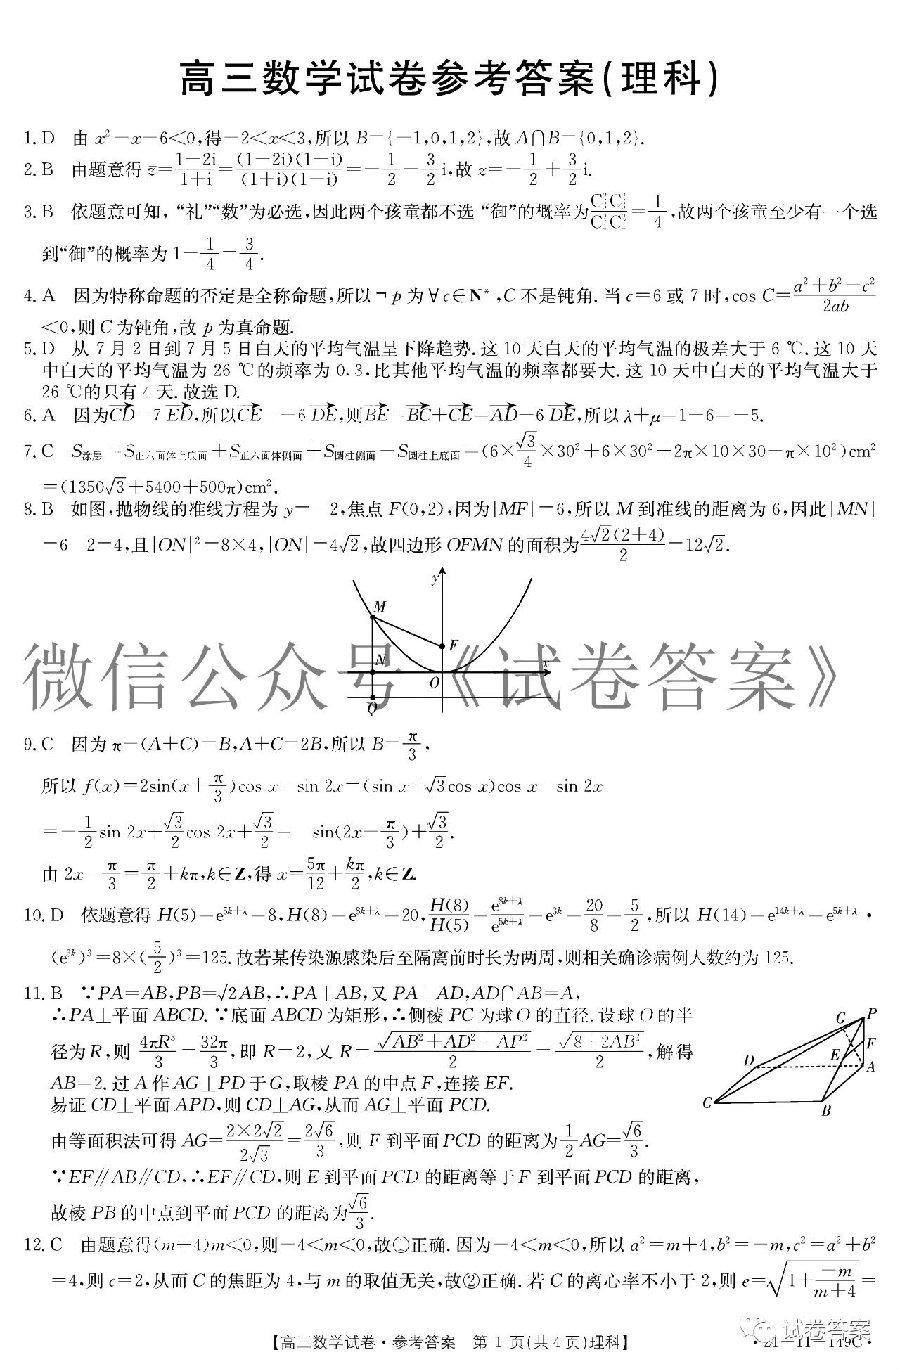 高三数学试卷参考答案(理科)
1. D 由 x²-x-6<0,得-2<x<3,所以 B={-1,0,1,2},故 A∩B={0,1,2}.
2. B 由题意得 z̄=(1-2i)/(1+i)=((1-2i)(1-i))/((1+i)(1-i))=-1/2-3/2 i,故 z=-1/2+3/2 i.
3. B 依题意可知,“礼”“数”为必选,因此两个孩童都不选“御”的概率为 =1/4,故两个孩童至少有一个选
到“御”的概率为 1-1/4=3/4.
4. A 因为特称命题的否定是全称命题,所以¬p 为∀c∈N*,C 不是钝角. 当 c=6 或 7 时,cos C=(a²+b²-c²)/2ab
<0,则 C 为钝角,故 p 为真命题.
5. D 从 7 月 2 日到 7 月 5 日白天的平均气温呈下降趋势. 这 10 天白天的平均气温的极差大于 6 ℃. 这 10 天
中白天的平均气温为 26 ℃的频率为 0.3,比其他平均气温的频率都要大. 这 10 天中白天的平均气温大于
26 ℃的只有 天. 故选 D.
6. A 因为CD=7ED,所以CE=-6DE,则BE=BC+CE=AD-6DE,所以 λ+μ=1-6=-5.
7. C S涂层=S正六面体上底面+S正六面体侧面+S圆柱侧面-S圆柱上底面=(6×√3/4×30²+6×30²+2π×10×30-π×10²)cm²
=(1350√3+5400+500π)cm².
8. B 如图,抛物线的准线方程为 y=-2,焦点 F(0,2),因为|MF|=6,所以 M 到准线的距离为 6,因此|MN|
=6-2=4,且|ON|²=8×4,|ON|=4√2,故四边形 OFMN 的面积为 4√2(2+4)/2=12√2.
y
M
F
N
x
O
Q
微信公众号《试卷答案》
9. C 因为 π-(A+C)=B,A+C=2B,所以 B=π/3,
所以 f(x)=2sin(x+π/3)cos x-sin 2x=(sin x+√3cos x)cos x-sin 2x
=-1/2 sin 2x+√3/2 cos 2x+√3/2=-sin(2x-π/3)+√3/2.
由 2x-π/3=π/2+kπ,k∈Z,得 x=5π/12+kπ/2,k∈Z.
10. D 依题意得 H(5)=e^(5k+λ)=8,H(8)=e^(8k+λ)=20,H(8)/H(5)=e^(8k+λ)/e^(5k+λ)=e^(3k)=20/8=5/2,所以 H(14)=e^(14k+λ)=e^(5k+λ)·
(e^(3k))³=8×(5/2)³=125. 故若某传染源感染后至隔离前时长为两周,则相关确诊病例人数约为 125.
11. B ∵PA=AB,PB=√2AB,∴PA⊥AB,又 PA⊥AD,AD∩AB=A,
∴PA⊥平面 ABCD. ∵底面 ABCD 为矩形,∴侧棱 PC 为球 O 的直径. 设球 O 的半
径为 R,则 4πR³/3=32π/3,即 R=2,又 R=√(AB²+AD²+AP²)/2=√(8+2AB²)/2,解得
AB=2. 过 A 作 AG⊥PD 于 G,取棱 PA 的中点 F,连接 EF.
易证 CD⊥平面 APD,则 CD⊥AG,从而 AG⊥平面 PCD.
由等面积法可得 AG=(2×2√2)/(2√3)=2√6/3,则 F 到平面 PCD 的距离为 1/2 AG=√6/3.
∵EF∥AB∥CD,∴EF∥CD,则 E 到平面 PCD 的距离等于 F 到平面 PCD 的距离,
故棱 PB 的中点到平面 PCD 的距离为 √6/3.
G
P
F
D
E
A
C
B
12. C 由题意得(m+4)m<0,则-4<m<0,故①正确. 因为-4<m<0,所以 a²=m+4,b²=-m,c²=a²+b²
=4,则 c=2,从而 C 的焦距为 4,与 m 的取值无关,故②正确. 若 C 的离心率不小于 2,则 e=√(1+(-m)/(m+4))=
【高三数学试卷·参考答案 第 1 页(共 4 页)理科】
·21-11-149C·
试卷答案